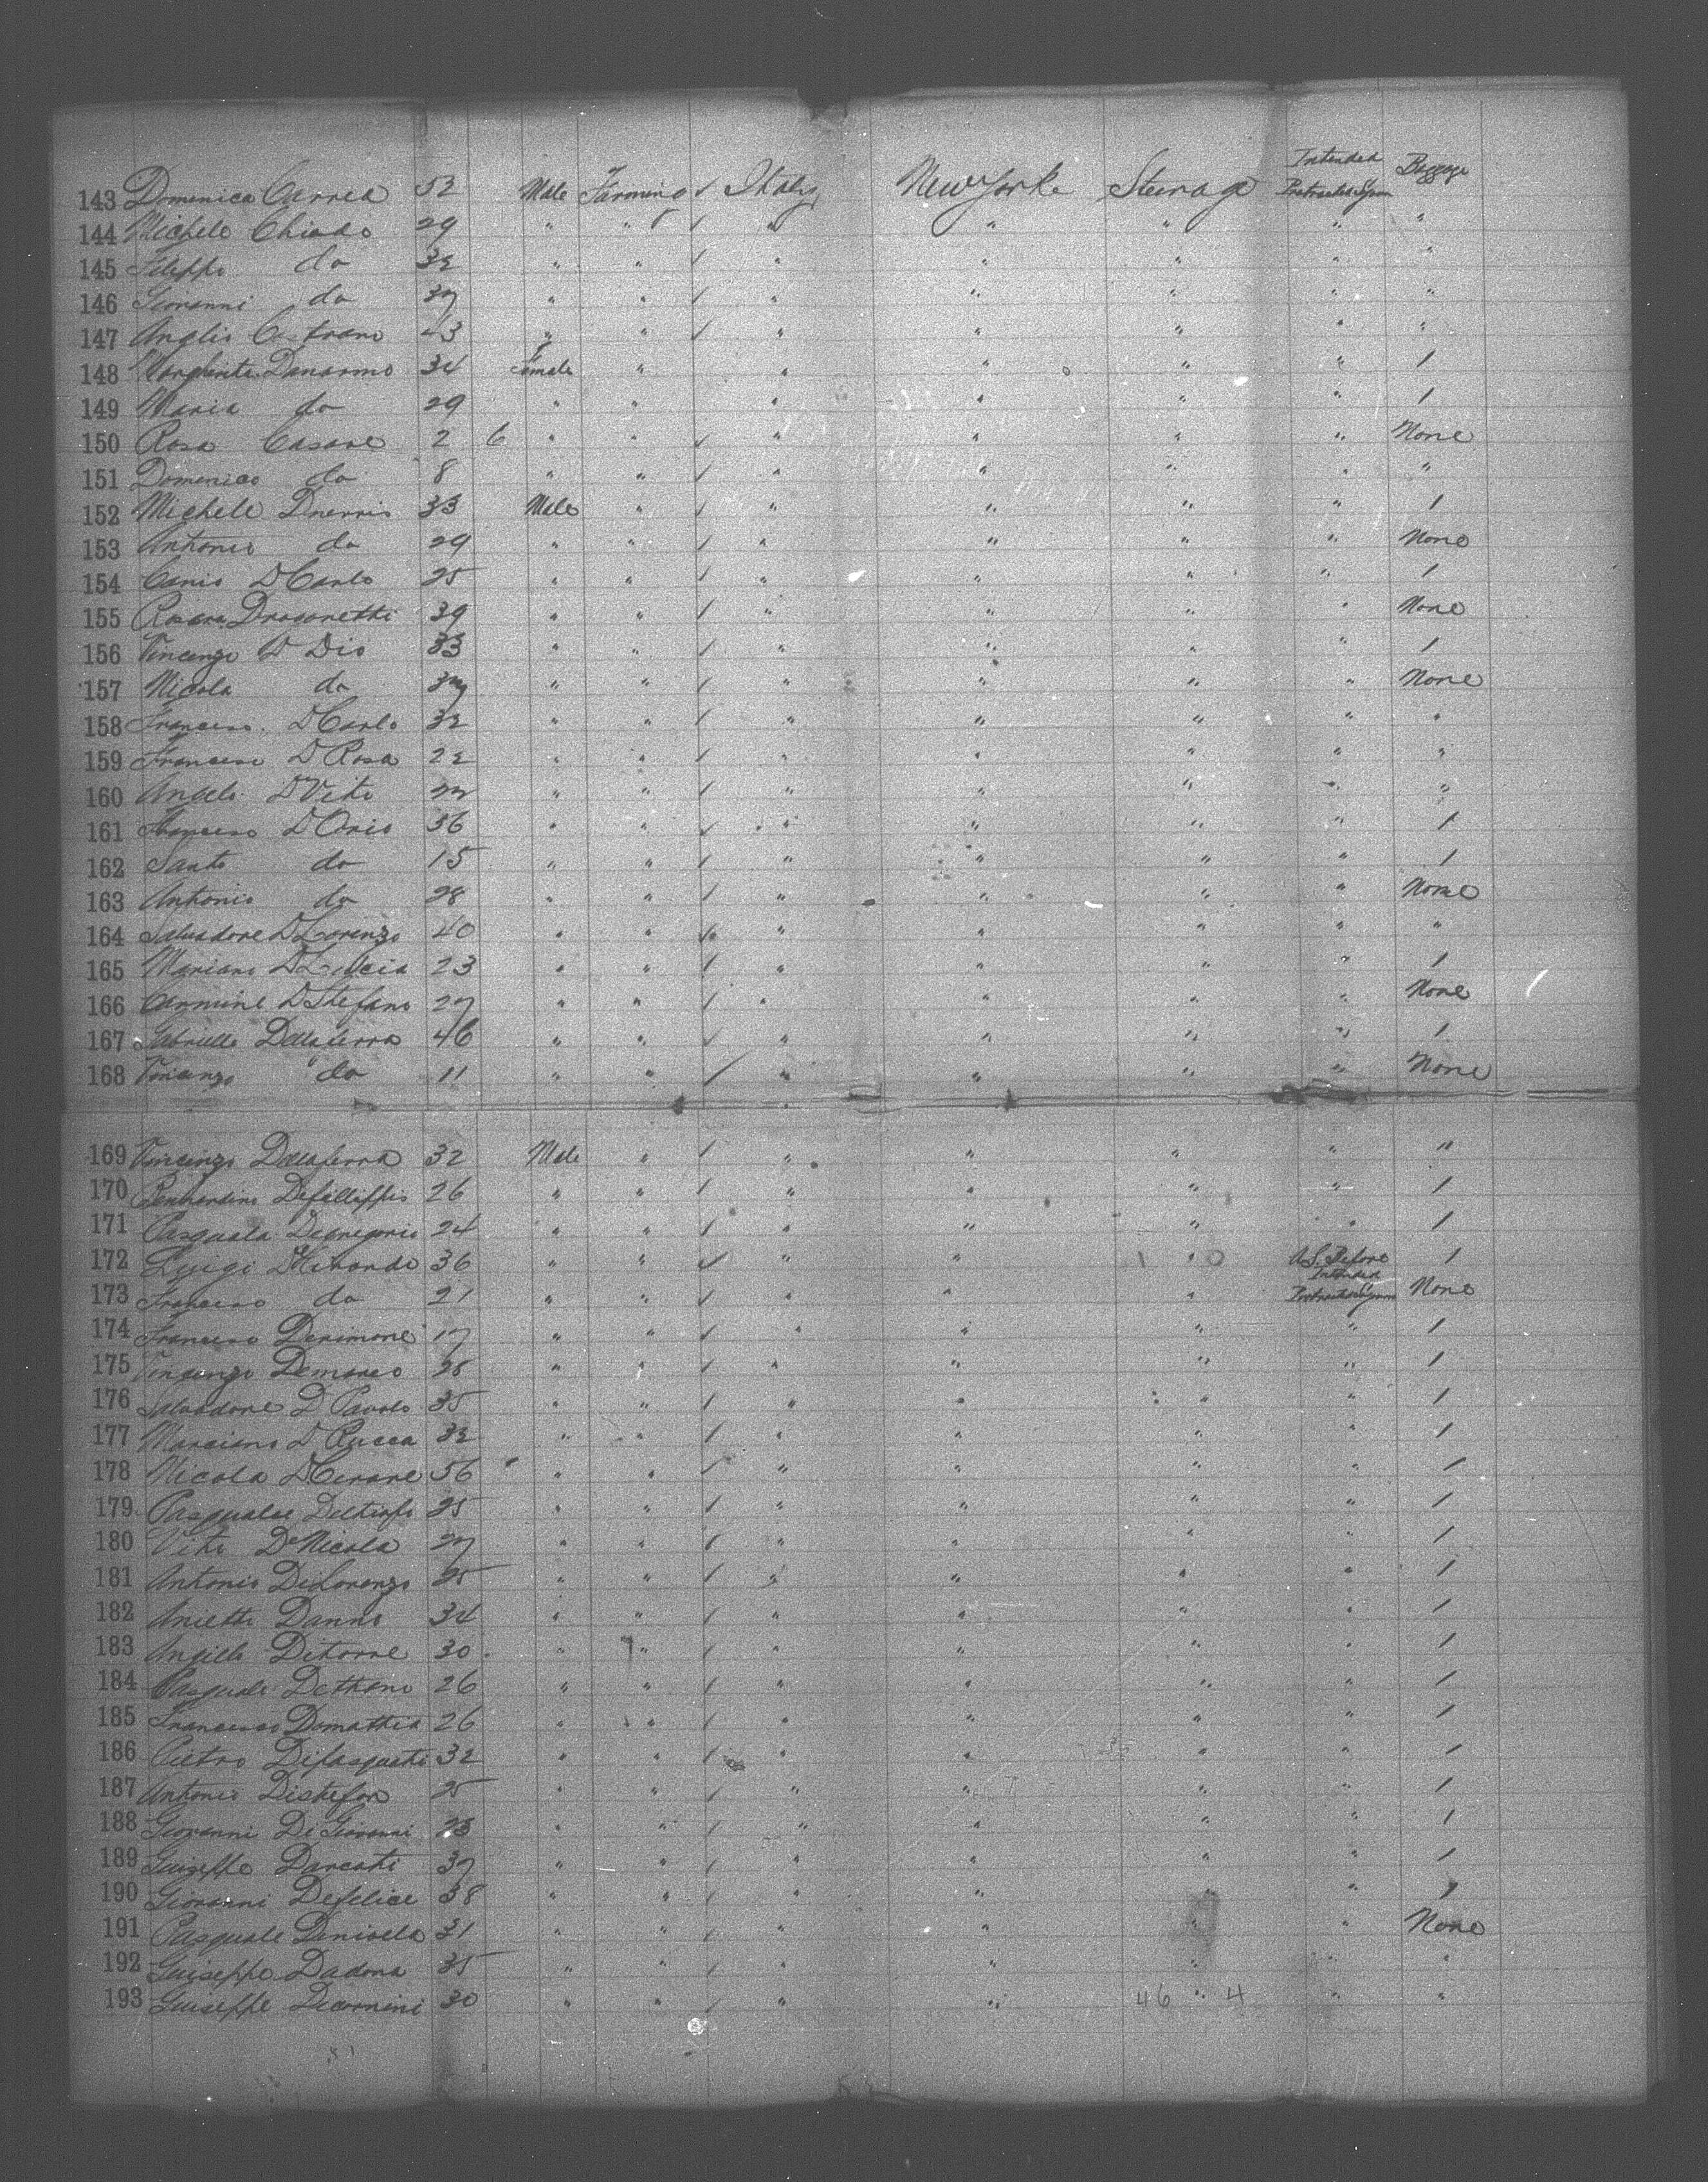 Intended Baggage
143 Domenica Carrea 52 Male Farming ✓ Italy New York Steerage Protracted Sojourn
144 Michele Chiado 29 " " / " " " " "
145 Filippo do 32 " " / " " " " "
146 Giovanni do 37 " " / " " " " "
147 43 " " / " " " " "
148 Margherita 34 Female " " " " " 1
149 Maria do 29 " " " " " " 1
150 Rosa Casare 2 6 " " ✓ " " " " None
151 Domenico do 8 " " / " " " " "
152 Michele 33 Male " / " " " " 1
153 Antonio do 29 " " / " " " " None
154 Canio D Carlo 25 " " / " " " " 1
155 Dragonetti 39 " " / " " " " None
156 Vincenzo D Dio 33 " " / " " " " 1
157 Nicola do 37 " " / " " " " None
158 Francesco D Carlo 32 " " / " " " " "
159 Francesco D Rosa 22 " " / " " " " "
160 Angelo D Vito " " / " " " " "
161 Francesco D Orio 36 " " ✓ " " " " 1
162 Santo do 15 " " / " " " " 1
163 Antonio do 28 " " / " " " " None
164 Salvadore D Lorenzo 40 " " ✓ " " " " "
165 Mariano D Luccia 23 " " / " " " " 1
166 Carmine D Stefano 27 " " / " " " " None
167 Gabriello Dellaferra 46 " " ✓ " " " " 1
168 Vincenzo do 11 " " / " " " " None
169 Vincenzo Dellaferra 32 Male " / " " " " "
170 Bernardino Defillippis 26 " " / " " " " 1
171 Pasquale Degregorio 24 " " / " " " " 1
172 Luigi 36 " " ✓ " " 1 " 0 U.S. Before 1
Intended
173 Francesco do 21 " " ✓ " " " Protracted Sojourn None
174 Francesco Desimone 17 " " / " " " " 1
175 Vincenzo Demarco 28 " " / " " " " 1
176 Salvadore D Paolo 35 " " / " " " " 1
177 Marciano D Rucca 32 " " / " " " " 1
178 Nicola 56 " " / " " " " 1
179 Pasquale 25 " " / " " " " 1
180 Vito DeNicola 27 " " / " " " " 1
181 Antonio DiLorenzo 25 " " / " " " " 1
182 Danno 34 " " / " " " " 1
183 Angillo Ditorre 30 " " / " " " " 1
184 Pasquale 26 " " / " " " " 1
185 Francesco Domathia 26 " " / " " " " 1
186 Pietro 32 " " / " " " " 1
187 Antonio Distefan 25 " " / " " " " 1
188 Giovanni De Giovanni 23 " " / " " " " 1
189 Guiseppe 37 " " / " " " " 1
190 Giovanni Defelice 38 " " / " " " " 1
191 Pasquale 31 " " / " " " " None
192 Guiseppe Dadona 35 " " / " " " " "
193 Guiseppe 30 " " / " " 46 " 4 " "